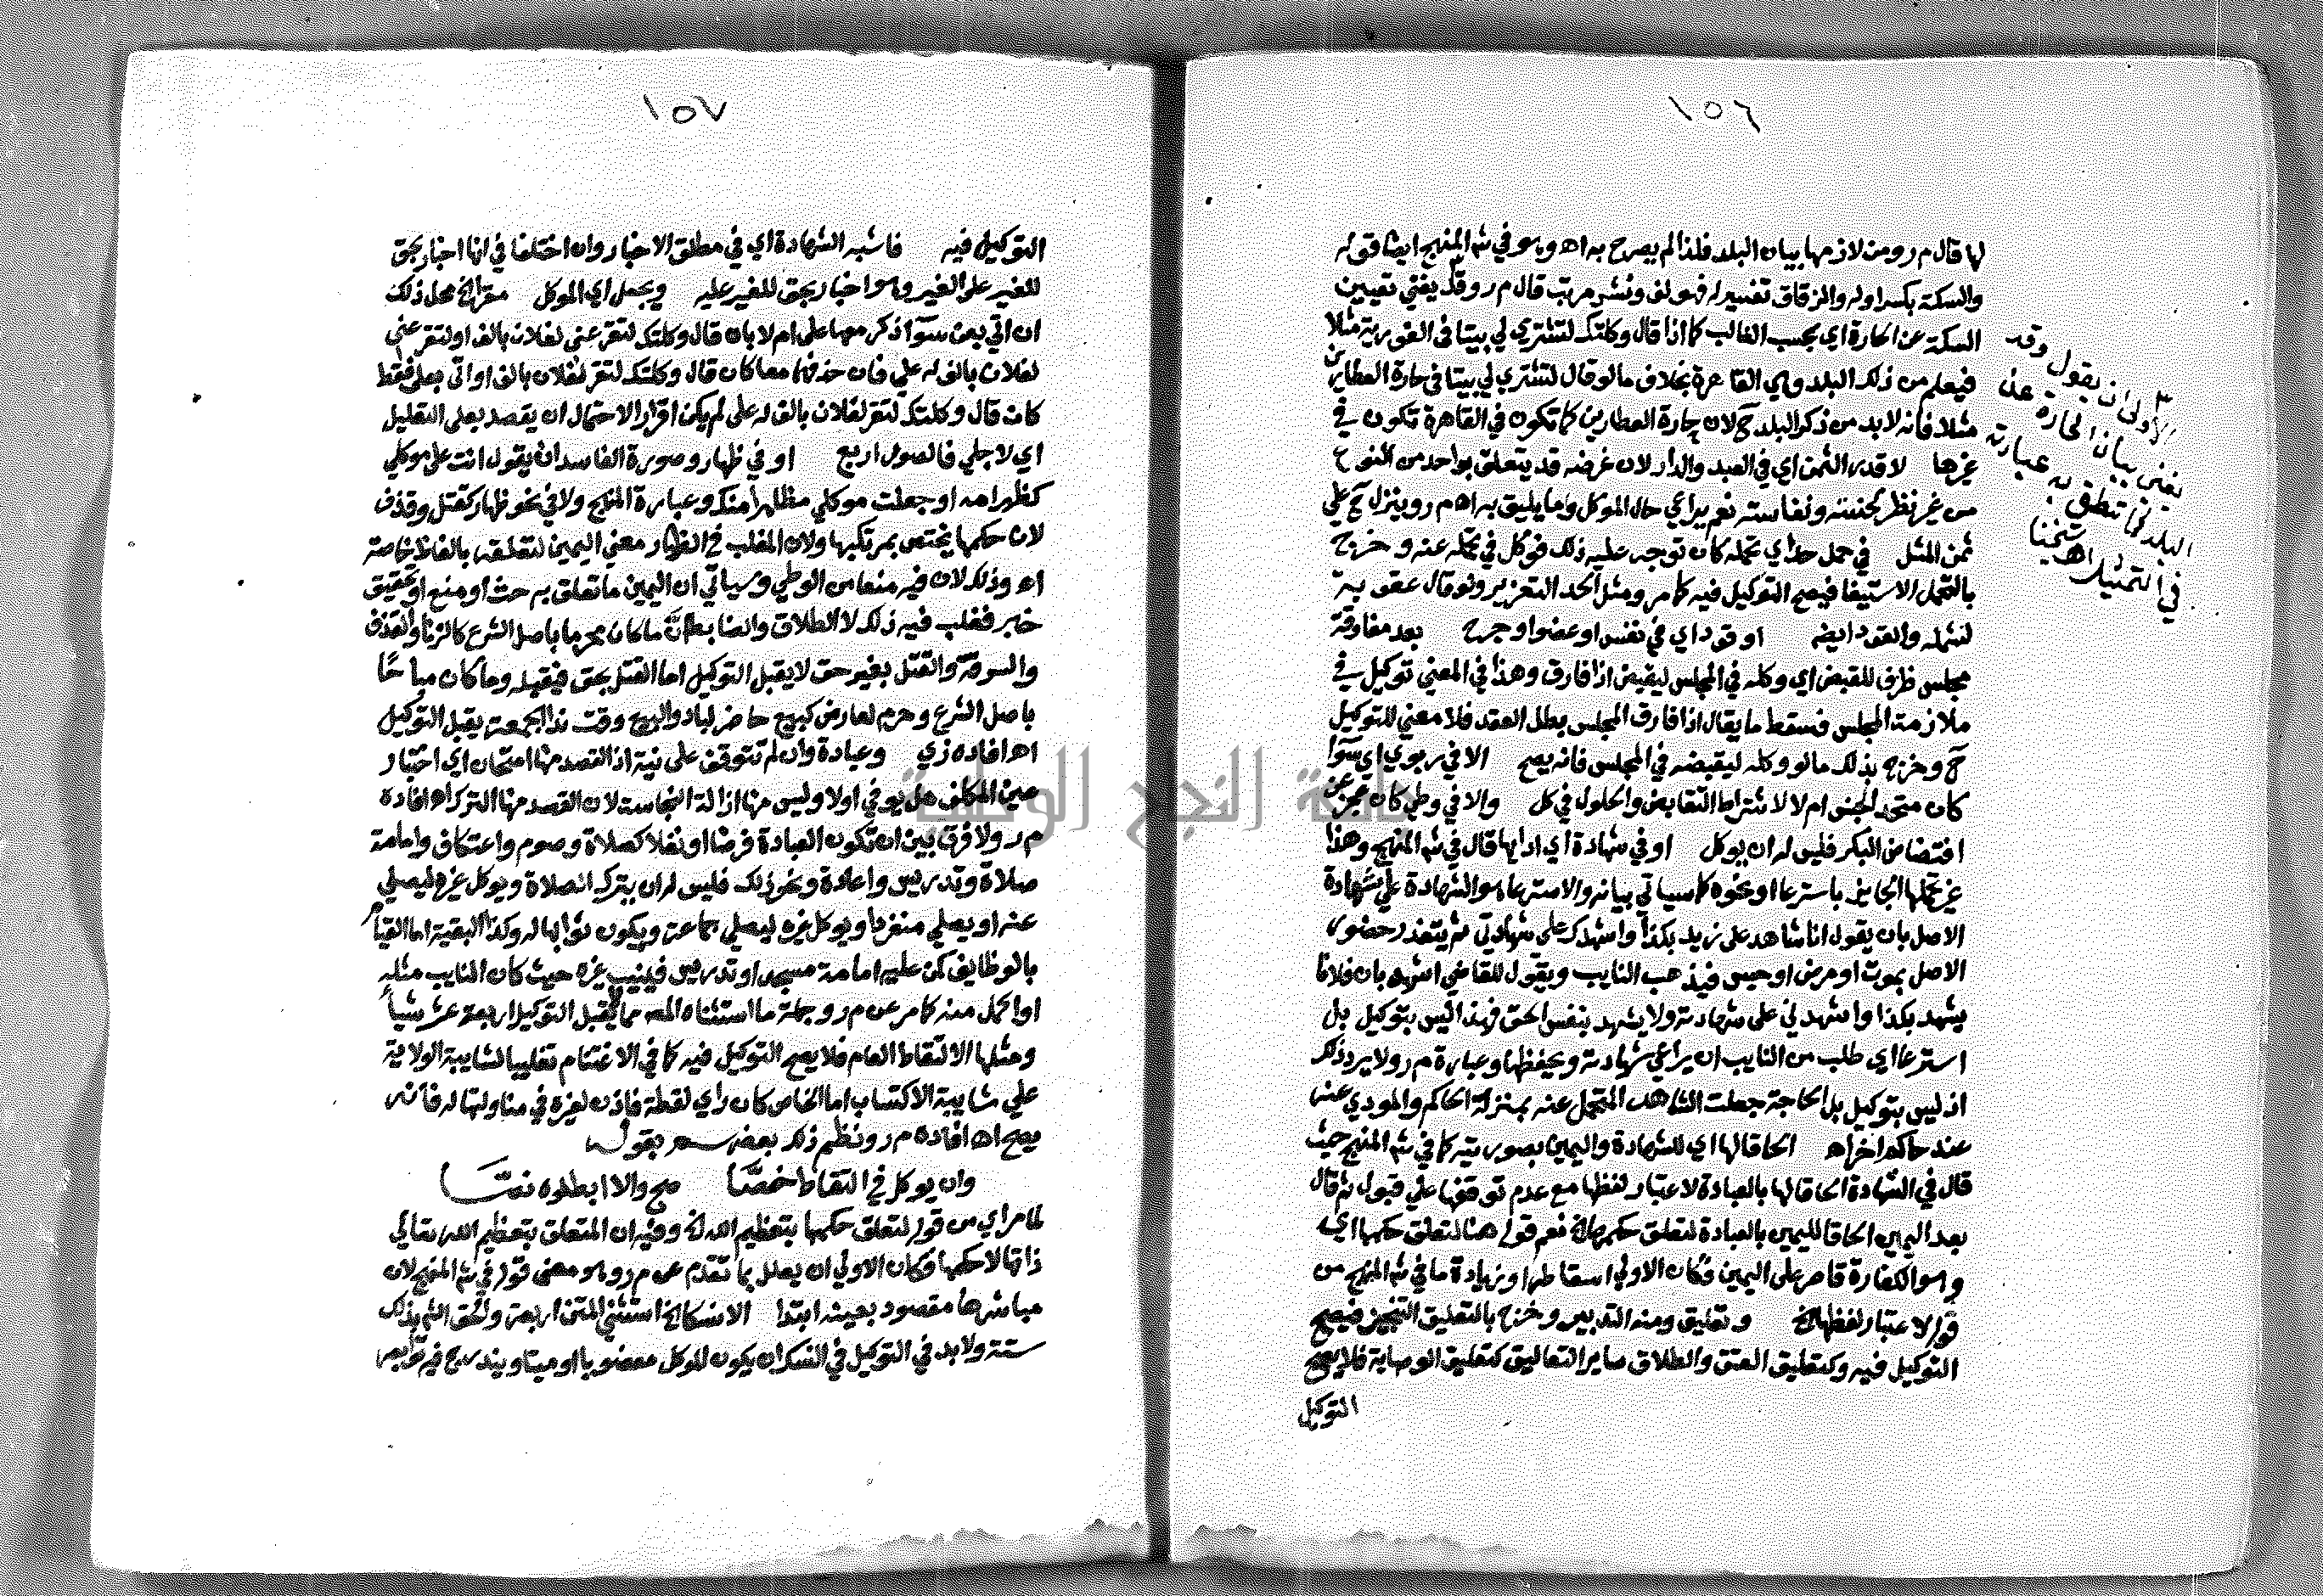 ١٥٦
لها قال م ر ومن لازمها بيان البلد فلذا لم يصرح به اه وهو في شم المنهج ايضا قوله
والسكة بكسر اوله والزقاق تفسير له فهو لف ونشر مرتب قال م ر وقد يغني تعيين
السكة عن الحارة اي بحسب الغالب كما اذا قال وكلتك لتشتري لي بيتا في الغورية مثلا
فيعلم من ذلك البلد وهي القاهرة بخلاف ما لو قال لتشتري لي بيتا في حارة العطارين
مثلا فانه لا بد من ذكر البلد ح لان حارة العطارين كما تكون في القاهرة تكون في
غيرها لا قدر الثمن اي في العبد والدار لان غرضه قد يتعلق بواحد من النوع
من غير نظر لخسته ونفاسته نعم يراعي حال الموكل وما يليق به اه م ر وينزل ح علي
ثمن المثل في حمل حد اي تحمله كان توجه عليه ذلك فوكل في تحمله عنه وخرج
بالتحمل الاستيفا فيصح التوكيل فيه كما مر ومثل الحد التعزير ولو قال عقوبة
لشمله والقود ايضه او قود اي في نفس او عضو او جرح بعد مفارقة
مجلس ظرف للقبض اي وكله في المجلس ليقبض اذا فارق وهذا في المعني توكيل في
ملازمة المجلس فسقط ما يقال اذا فارق المجلس بطل العقد فلا معني للتوكيل
ح وخرج بذلك ما لو وكله ليقبضه في المجلس فانه يصح الا في ربوي اي سوا
كان متحد الجنس ام لا لاشتراط التقابض والحلول في كل والا في وطي كان عجز عن
افتضاض البكر فليس له ان يوكل او في شهادة اي ادايها قال في شم المنهج وهذا
غير تحملها الجايز باسترعا او نحوه كما سياتي بيانه والاسترعا هو الشهادة علي شهادة
الاصل بان يقول انا شاهد على زيد بكذا واشهدك على شهادتي ثم يتعذر حضور
الاصل بموت او مرض او حبس فيذهب النايب ويقول للقاضي اشهد بان فلانا
يشهد بكذا واشهدني على شهادته ولا يشهد بنفس الحق فهذا ليس بتوكيل بل
استرعا اي طلب من النايب ان يراعي شهادته ويحفظها وعبارة م ر ولا يرد ذلك
اذ ليس بتوكيل بل الحاجة جعلت الشاهد المتحمل عنه بمنزلة الحاكم والمودي عنه
عند حاكم اخر اه الحاقا لها اي للشهادة واليمين بصورتيه كما في شم المنهج حيث
قال في الشهادة الحاقا لها بالعبادة لاعتبار لفظها مع عدم توقفها علي قبول ثم قال
بعد اليمين الحاقا لليمين بالعبادة لتعلق حكمها الخ نعم قوله هنا لتعلق حكمها اي
وهو الكفارة قاصر على اليمين فكان الاولي اسقاطها وزيادة ما في شم المنهج من
قوله لاعتبار لفظها الخ وتعليق ومنه التدبير وخرج بالتعليق التنجيز فيصح
التوكيل فيه وكتعليق العتق والطلاق ساير التعاليق كتعليق الوصاية فلا يصح
التوكيل
الاولى ان يقول وقد
يغني بيان الحارة عن
البلد كما تنطق به عبارته
في التمثيل اه شيخنا
١٥٧
التوكيل فيه فاشبه الشهادة اي في مطلق الاخبار وان اختلفا في انها اخبار بحق
للغير على الغير وهو اخبار بحق للغير عليه ويجعل اي الموكل مقرا الخ محل ذلك
ان اتي بعن سوا ذكر معها على ام لا بان قال وكلتك لتقر عني لفلان بالف او لتقر عني
لفلان بالف له علي فان حذفها معا كان قال وكلتك لتقر لفلان بالف او اتي بعلى فقط
كان قال وكلتك لتقر لفلان بالف له على لم يكن اقرارا لاحتمال ان يقصد بعلى التعليل
اي لاجلي فالصور اربع او في ظهار وصورة الفاسد ان يقول انت على موكلي
كظهر امه او جعلت موكلي مظاهرا منك وعبارة المنهج ولا في نحو ظهار كقتل وقذف
لان حكمها يختص بمرتكبها ولان المغلب في الظهار معني اليمين لتعلقه بالفاظ خاصة
اه وذلك لان فيه منعا من الوطي وسياتي ان اليمين ما تعلق به حث او منع او تحقيق
خبر فغلب فيه ذلك لا الطلاق والضابط ان ما كان محرما باصل الشرع كالزنا والقذف
والسرقة والقتل بغير حق لا يقبل التوكيل اما القتل بحق فيقبله وما كان مباحا
باصل الشرع وحرم لعارض كبيع حاضر لباد والبيع وقت ندا الجمعة يقبل التوكيل
اه افاده زي وعبادة وان لم تتوقف على نية اذ القصد منها امتحان اي اختبار
عين المكلف هل يوفي اولا وليس منها ازالة النجاسة لان القصد منها الترك اه افاده
م ر ولا فرق بين ان تكون العبادة فرضا او نفلا كصلاة وصوم واعتكاف وامامة
صلاة وتدريس واعادة ونحو ذلك فليس له ان يترك الصلاة ويوكل غيره ليصلي
عنه او يصلي منفردا ويوكل غيره ليصلي جماعة ويكون ثوابها له وكذا البقية اما القيام
بالوظايف كمن عليه امامة مسجد او تدريس فينيب غيره حيث كان النايب مثله
او اكمل منه كما مر عن م ر وجملة ما استثناه المصم مما يقبل التوكيل اربعة عشر شيا
ومثلها الالتقاط العام فلا يصح التوكيل فيه كما في الاغتنام تغليبا لشايبة الولاية
علي شايبة الاكتساب اما الخاص كان راي لقطة فاذن لغيره في مناولتها له فانه
يصح اه افاده م ر ونظم ذلك بعضهم بقوله
وان يوكل في التقاط خصصا صح والا ابطلوه نصا
لما مر اي من قوله لتعلق حكمها بتعظيم الله الخ وفيه ان المتعلق بتعظيم الله تعالي
ذاتها لا حكمها فكان الاولي ان يعلل بما تقدم عن م ر وهو معنى قوله في شم المنهج لان
مباشرها مقصود بعينه ابتدا الا نسكا الخ استثني المتن اربعة والحق الشم بذلك
ستة ولا بد في التوكيل في النسك ان يكون الموكل معضوبا او ميتا ويندرج فيه توابعه